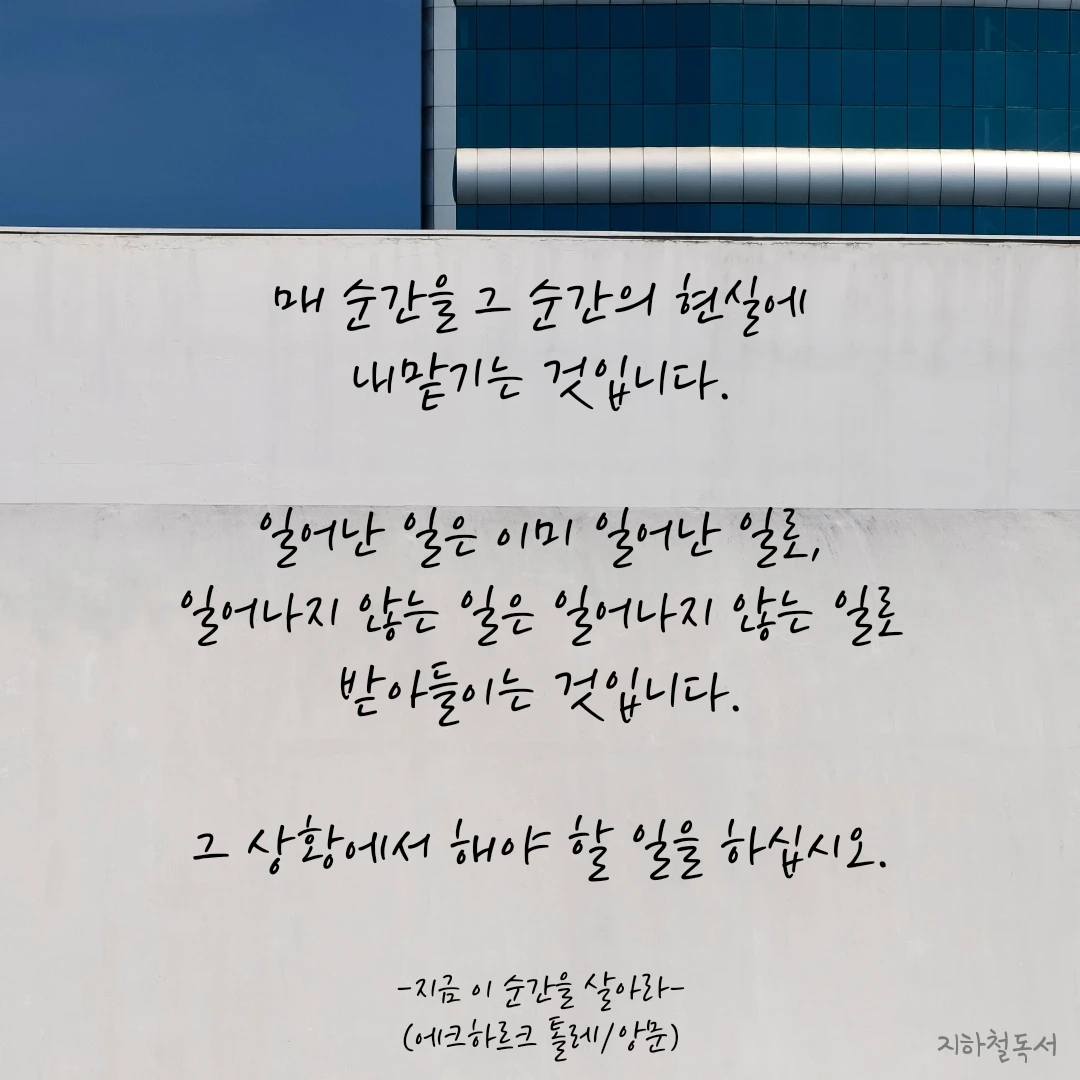 매 순간을 그 순간의 현실에
내맡기는 것입니다.
일어난 일은 이미 일어난 일로,
일어나지 않는 일은 일어나지 않는 일로
받아들이는 것입니다.
그 상황에서 해야 할 일을 하십시오.
-지금 이 순간을 살아라-
(에크하르크 톨레/양문)
지하철독서